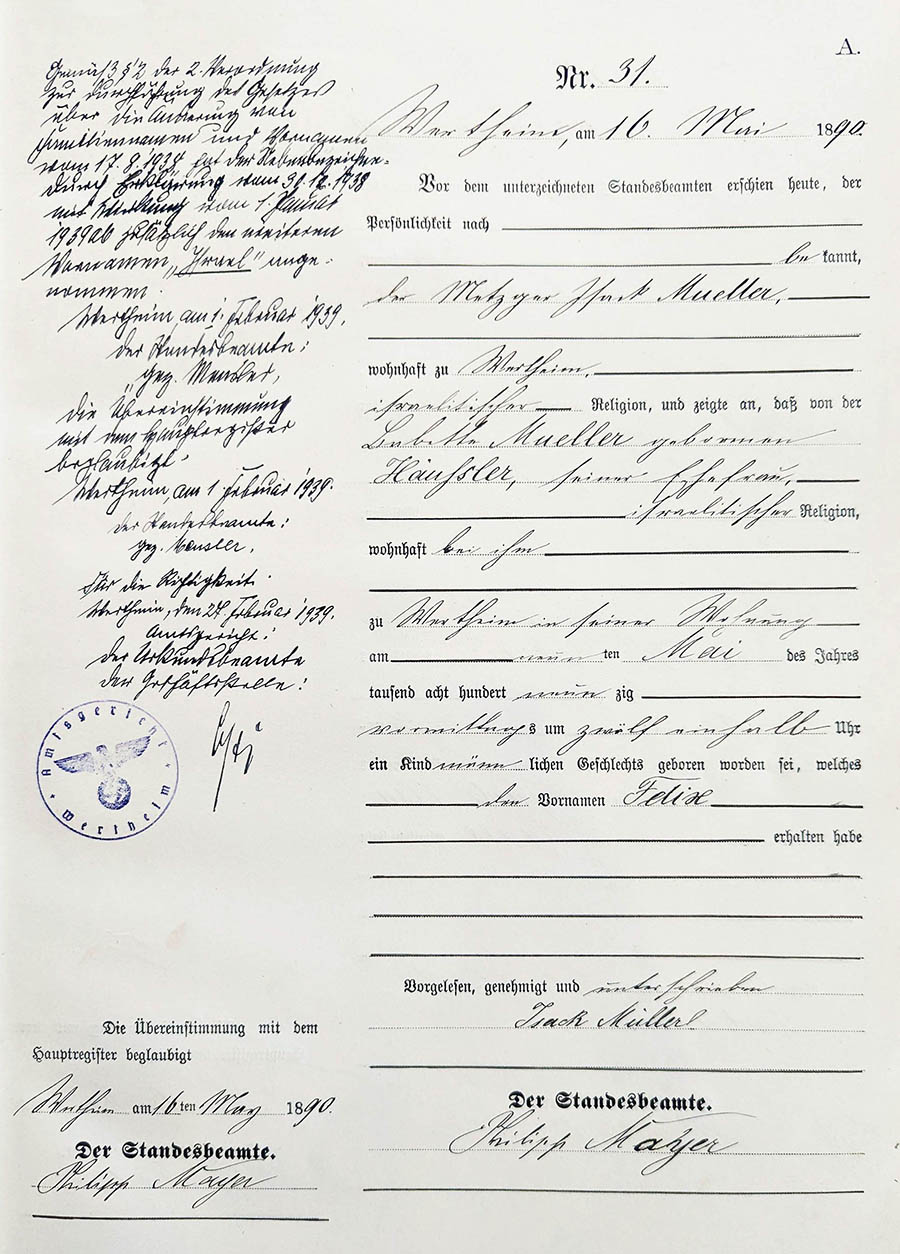 A.
Nr. 31.
Wertheim, am 16. Mai 1890.
Vor dem unterzeichneten Standesbeamten erschien heute, der
Persönlichkeit nach
be kannt,
der Metzger Isack Mueller,
wohnhaft zu Wertheim,
israelitischer Religion, und zeigte an, daß von der
Babette Mueller geborenen
Häußler, seiner Ehefrau,
israelitischer Religion,
wohnhaft bei ihm
zu Wertheim in seiner Wohnung
am neun ten Mai des Jahres
tausend acht hundert neun zig
vormittags um zwölf einhalb Uhr
ein Kind männ lichen Geschlechts geboren worden sei, welches
den Vornamen Felix
erhalten habe
Vorgelesen, genehmigt und unterschrieben
Isack Müller
Der Standesbeamte.
Philipp Mayer
Gemäß § 2 der 2. Verordnung
zur Durchführung des Gesetzes
über die Änderung von
Familiennamen und Vornamen
vom 17.8.1938 hat der Nebenbezeichnete
durch Erklärung vom 31.12.1938
mit Wirkung vom 1. Januar
1939 ab zusätzlich den weiteren
Vornamen „Israel" ange-
nommen.
Wertheim, am 1. Februar 1939.
der Standesbeamte:
gez.
Die Übereinstimmung
mit dem Hauptregister
beglaubigt.
Wertheim, am 1 Februar 1939.
der Standesbeamte:
gez.
Für die Richtigkeit.
Wertheim, den 24. Februar 1939.
Amtsgericht:
der Urkundsbeamte
der Geschäftsstelle:
Amtsgericht
Wertheim
Die Übereinstimmung mit dem
Hauptregister beglaubigt
Wertheim am 16 ten May 1890.
Der Standesbeamte.
Philipp Mayer